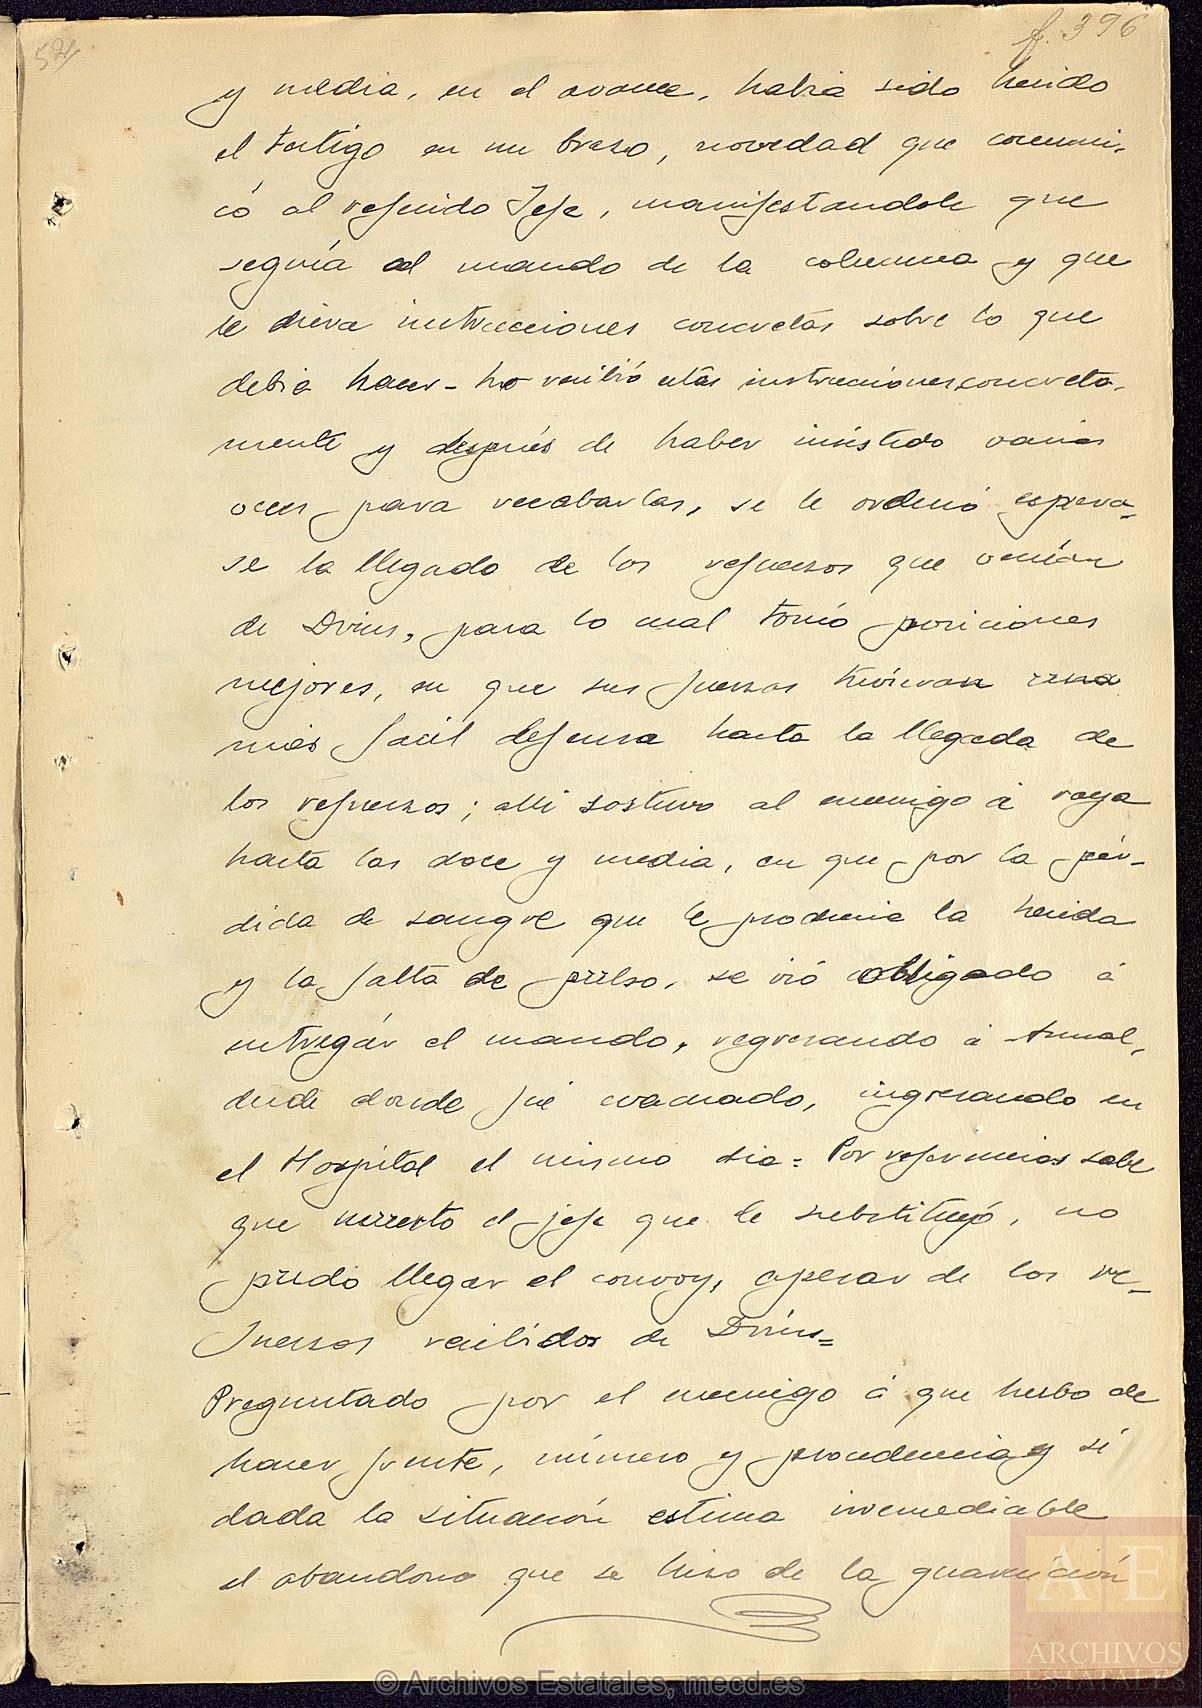 521
f. 396
y media, en el avance, habia sido herido
el testigo en un braso, novedad que comuni-
có al referido Jefe, manifestandole que
seguía al mando de la columna y que
le diera instrucciones concretas sobre lo que
debia hacer - No recibió estas instrucciones concreta-
mente y después de haber insistido varias
veces para recabarlas, se le ordenó espera-
se la llegada de los refuerzos que venian
de Drius, para lo cual tomó posiciones
mejores, en que sus fuerzas tuvieran una
más facil defensa hasta la llegada de
los refuerzos; alli sostuvo al enemigo á raya
hasta las doce y media, en que por la pér-
dida de sangre que le producia la herida
y la falta de pulso, se vió obligado á
entregár el mando, regresando á Annual,
desde donde fué evacuado, ingresando en
el Hospital el mismo dia = Por referencias sabe
que muerto el jefe que le substituyó, no
pudo llegar el convoy, apesar de los re-
fuerzos recibidos de Drius =
Preguntado por el enemigo á que hubo de
hacer frente, número y procedencia y si
dada la situación estima irremediable
el abandono que se hiso de la guarnición
AE
ARCHIVOS
ESTATALES
© Archivos Estatales, mecd.es